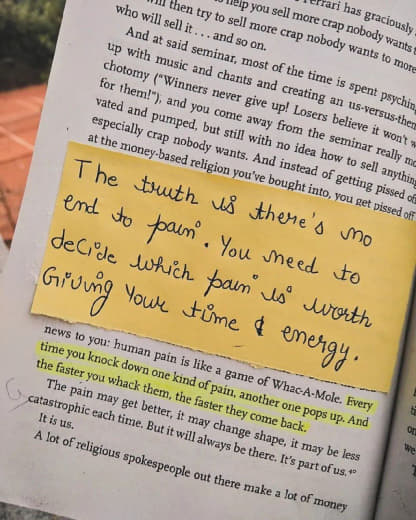 help you sell more crap nobody wants
who will sell it . . . and so on.
And at said seminar, most of the time is spent
up with music and chants and creating an us-versus-them
chotomy ("Winners never give up! Losers believe it won't
for them!"), and you come away from the seminar really
vated and pumped, but still with no idea how to sell anything
especially crap nobody wants. And instead of getting pissed off
at the money-based religion you've bought into, you get pissed off
The truth is there's no
end to pain. You need to
decide which pain is worth
Giving Your time & energy.
news to you: human pain is like a game of Whac-A-Mole. Every
time you knock down one kind of pain, another one pops up. And
the faster you whack them, the faster they come back.
The pain may get better, it may change shape, it may be less
catastrophic each time. But it will always be there. It's part of us.⁴⁰
It is us.
A lot of religious spokespeople out there make a lot of money